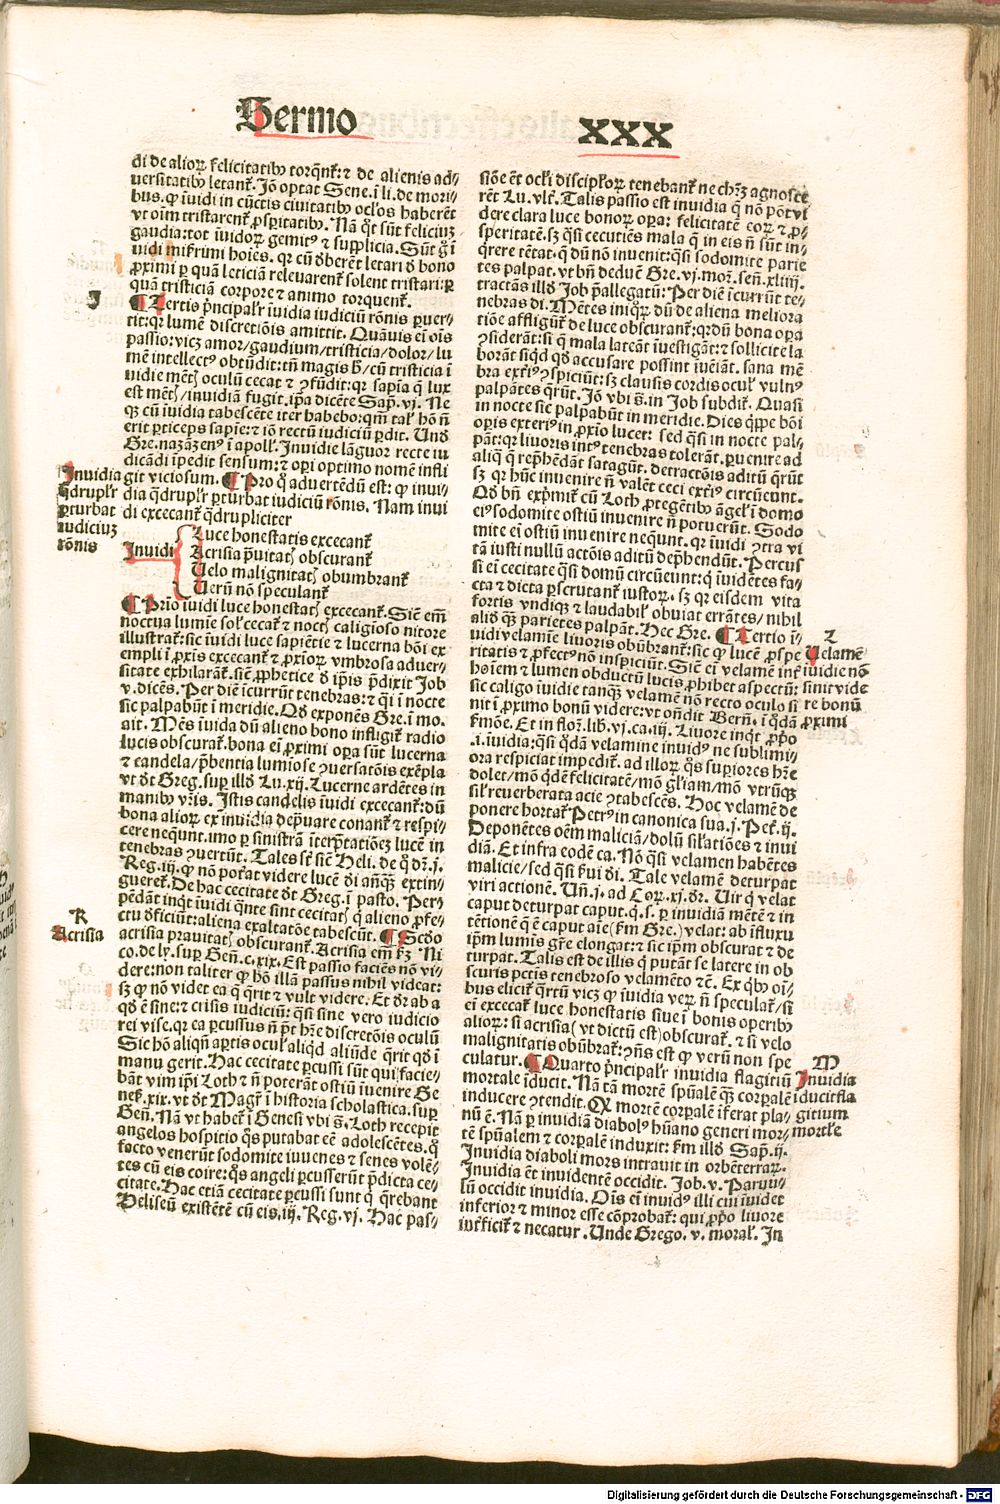 Sermo XXX
di de alioꝝ felicitatibꝰ torq̄nt̃: ⁊ de alienis ad⸗
uersitatibꝰ letant̃. Jō optat Sene. ī li. de mori⸗
bus. ꝙ īuidi in cūctis ciuitatibꝰ oc̄los haberēt
vt oīm tristarent̃ ꝓsꝑitatibꝰ. Nā q̄t sūt feliciuꝫ
gaudia: tot īuidoꝝ gemitꝰ ⁊ supplicia. Sūt g̊ ī
uidi mis̃rimi hoīes. qꝛ cū ōberēt letari ō bono
ꝓximi ꝑ quā leticiā releuarent̃ solent tristari: ꝑ
quā tristiciā corpore ⁊ animo torquent̃.
J
¶ Tertis p̄ncipalr̄ īuidia iudiciū rōnis ꝑuer⸗
tit: qꝛ lumē discretiōnis amittit. Quāuis ei oīs
passio: vicꝫ amor/ gaudium/ tristicia/ dolor/ lu
mē intellectꝰ obtūdit: tn̄ magis h̄/ cū tristicia ī
uidie mētꝭ oculū cecat ⁊ ꝯfūdit: qꝛ sapīa q̄ lux
est mētꝭ/ inuidiā fugit. ip̄a dicēte Sap̄. vj. Ne
qꝫ cū īuidia tabescēte iter habebo: qm̄ tal̓ hō n̄
erit ꝑticeps sapīe: ⁊ iō rectū iudiciū ꝑdit. Un̄
Gre. nazāzenꝰ ī apoll̓. Inuidie lāguor recte iu
dicādi īpedit sensum: ⁊ oꝑi optimo nomē infli
git viciosum. ¶ Pro q̊ aduertēdū est: ꝙ inui⸗
dia q̄druplr̄ ꝑturbat iudiciū rōnis. Nam inui
di excecant̃ q̄drupliciter
Inuidia
q̄druplr̄
ꝑturbat
iudiciuꝫ
rōnis
Inuidi
Luce honestatis excecant̃
Acrisia p̄uitatꝭ obscurant̃
Uelo malignitatꝭ obumbrant̃
Uerū nō speculant̃
¶ Prīo īuidi luce honestatꝭ excecant̃. Sic̄ em̄
noctua lumīe sol̓ cecat̃ ⁊ noctꝭ caligioso nitore
illustrat̃: sic īuidi luce sapiētie ⁊ lucerna bōi ex
empli ī ꝓxis excecant̃ ⁊ ꝓxioꝝ vmbrosa aduer⸗
sitate exhilarāt̃. sic̄ ꝓphetice ō ip̄is p̄dixit Job
v. dicēs. Per diē īcurrūt tenebras: ⁊ q̄i ī nocte
sic palpabūt ī meridie. Qd̄ exponēs Gre. ī mo.
ait. Mēs īuida dū alieno bono infligit̃ radio
lucis obscurat̃. bona ei ꝓximi oꝑa sūt lucerna
⁊ candela/ p̄bentia lumīose ꝯuersatōis exēpla
vt d̄t Greg. suꝑ illd̄ Lu. xij. Lucerne ardētes in
manibꝰ vr̄is. Istis candelis īuidi excecant̃: dū
bona alioꝝ ex inuidia dep̄uare conant̃ ⁊ respi⸗
cere neqūnt. īmo ꝑ sinistrā īterp̄tatiōeꝫ lucē in
tenebras ꝯuertūt. Tales sē sic̄ Heli. de q̊ d̄r. j.
Reg. iij. ꝙ nō poťat videre lucē dī anq̄ꝫ extin⸗
gueret̃. De hac cecitate d̄t Greg. ī pasto. Per⸗
pēdāt inq̄t īuidi q̄nte sint cecitatꝭ q̄ alieno ꝓfe⸗
ctu dficiūt: aliena exaltatōe tabescūt. ¶ Sc̄do
acrisia prauitatꝭ obscurant̃. Acrisia em̄ ẜm Ni
co. de ly. suꝑ Gen̄. c. xix. Est passio faciēs nō vi⸗
dere: non taliter ꝙ hō illā passus nihil videat:
sꝫ ꝙ nō videt ea q̄ q̄rit ⁊ vult videre. Et d̄r ab a
qd̄ ē sine: ⁊ crisis iudiciū: q̄si sine vero iudicio
rei vise. qꝛ ea ꝑcussus n̄ p̄t hr̄e discretōis oculū
Sic hō aliqn̄ aꝑtis ocul̓ aliqd̄ aliūde q̄rit qd̄ ī
manu gerit. Hac cecitate ꝑcussi sūt qui facie⸗
bāt vim ip̄i Loth ⁊ n̄ poterāt ostiū īuenire Ge
nes̓. xix. vt d̄t Magr̄ ī historia scholastica. suꝑ
Gen̄. Nā vt habet̃ ī Genesi vbi s̄. Loth recepit
angelos hospitio q̄s putabat eē adolescētes. q̄
facto venerūt sodomite iuuenes ⁊ senes volē⸗
tes cū eis coire: q̄s angeli ꝑcusserūt p̄dicta ce⸗
citate. Hac etiā cecitate ꝑcussi sunt q̄ q̄rebant
Heliseū existētē cū eis. iij. Reg. vj. Hac pas⸗
K
Acrisia
siōe ēt oc̄li discipl̓oꝝ tenebant̃ ne chr̄ꝫ agnosce
rēt Lu. vlt̓. Talis passio est inuidia q̄ nō pōt vi
dere clara luce bonoꝝ oꝑa: felicitatē eoꝝ ⁊ ꝓ⸗
speritatē. sꝫ q̄si cecutiēs mala q̄ in eis n̄ sūt in⸗
q̄rere tētat. q̄ dū nō inuenit: q̄si sodomite parie
tes palpat. vt bn̄ deduc̄ Gre. vj. mor̓. sen̄. xliiij.
tractās illd̄ Job p̄allegatū: Per diē īcurrūt te⸗
nebras ⁊c. Mētes iniqꝝ dū de aliena meliora
tiōe affligūt̃ de luce obscurant̃: qꝛ dū bona oꝑa
ꝯsiderāt: si q̄ mala lateāt īuestigāt: ⁊ sollicite la
borāt siqd̄ qd̄ accusare possint īueīant. sana mē
bra exťiꝰ ꝯspiciūt: sꝫ clausis cordis ocul̓ vulnꝰ
palpātes q̄rūt. Jō vbi s̄. in Job subdit̃. Quasi
in nocte sic palpabūt in meridie. Dies q̄ppe bōi
oꝑis exteriꝰ in ꝓxio lucet: sed q̄si in nocte pal⸗
pāt: qꝛ liuoris intꝰ tenebras tolerāt. ꝑuenire ad
aliq̄ q̄ rep̄hēdāt satagūt. detractōis aditū q̄rūt
sꝫ qꝛ hūc inuenire n̄ valēt ceci exťiꝰ circūeunt.
Qd̄ bn̄ exp̄mit̃ cū Loth ꝓtegētibꝰ āgel̓ ī domo
eiꝰ sodomite ostiū inuenire n̄ potuerūt. Sodo
mite ei ostiū inuenire neqūnt. qꝛ īuidi ꝯtra vi
tā iusti nullū actōis aditū dep̄hendūt. Percus
si ei cecitate q̄si domū circūeunt: q̄ īuidētes fa⸗
cta ⁊ dicta ꝑscrutant̃ iustoꝝ. sꝫ qꝛ eisdem vita
fortis vndiqꝫ ⁊ laudabil̓ obuiat errātes/ nihil
aliđ qꝫ parietes palpāt. Hec Gre. ¶ Tertio ī⸗
uidi velamīe liuoris obūbrant̃: sic ꝙ lucē ꝓspe
ritatis ⁊ ꝓfectꝰ nō inspiciūt. Sic̄ ei velamē inť
hoīem ⁊ lumen obductū lucis ꝓhibet aspectū:
sic caligo īuidie tanqꝫ velamē nō recto oculo si
nit ī ꝓximo bonū videre: vt on̄dit Bern̄. ī q̊dā
ẜmōe. Et in flor̓. lib. vj. ca. iij. Liuore inq̄t ꝓp̓o
.i. īuidia: q̄si q̊dā velamine inuidꝰ ne sublimi⸗
ora respiciat impedit̃. ad illoꝝ q̄s suꝑiores hr̄e
dolet/ mō q̄dē felicitatē/ mō gl̓iam/ mō vtrūqꝫ
sil̓ reuerberata acie ꝯtabescēs. Hoc velamē de
ponere hortat̃ Petrꝰ in canonica sua. j. Pet̓. ij.
Deponētes oēm maliciā/ dolū silatiōes ⁊ inui
diā. Et infra eodē ca. Nō q̄si velamen habētes
malicie/ sed q̄si ẜui dī. Tale velamē deturpat
viri actionē. Un̄. j. ad Coꝝ. xj. d̄r. Uir q̄ velat
caput deturpat caput. q. s. ꝑ inuidiā mētē ⁊ in
tētionē q̄ ē caput aīe (ẜm Gre.) velat: ab īfluxu
ip̄m lumīs gr̄e elongat: ⁊ sic ip̄m obscurat ⁊ de
turpat. Talis est de illis q̄ putāt se latere in ob
scuris pctīs tenebroso velamēto ⁊c̄. Ex q̇bꝰ oī⸗
bus elicit̃ q̄rtū vicꝫ ꝙ īuidia veꝝ n̄ speculat̃/ si
ei excecat̃ luce honestatis siue ī bonis oꝑibꝰ
alioꝝ: si acrisia (vt dictū est) obscurat̃. ⁊ si velo
malignitatis obūbrat̃: ꝯn̄s est ꝙ verū non spe
culatur. ¶ Quarto p̄ncipalr̄ inuidia flagitiū
mortale īducit. Nā tā mortē spūalē qꝫ corꝑalē
inducere ꝯtendit. Q̄ mortē corꝑalē īferat pla⸗
nū ē. Nā ꝑ inuidiā diabolꝰ hūano generi mor⸗
tē spūalem ⁊ corꝑalē induxit: ẜm illd̄ Sap̄. ij.
Inuidia diaboli mors intrauit in orbē terraꝝ.
Inuidia ēt inuidentē occidit. Job. v. Paruu⸗
lū occidit inuidia. Oīs ei inuidꝰ illi cui īuidet
inferior ⁊ minor esse cōprobat̃: qui ꝓp̓o liuore
inťficit̃ ⁊ necatur. Unde Grego. v. moral̓. In
L
Uelamē
iuidie nō
sinit vide
re bonū
ꝓximi
M
Inuidia
īducit fla
gitium
mortl̓e
Digitalisierung gefördert durch die Deutsche Forschungsgemeinschaft - DFG